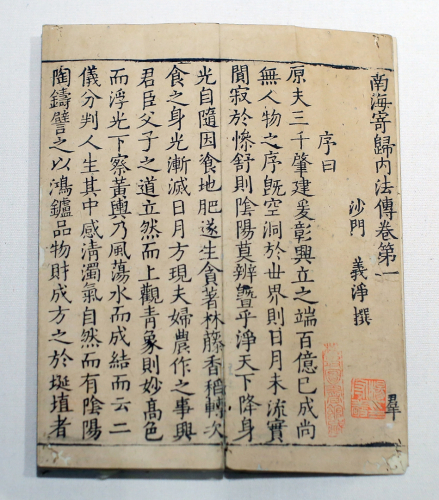 南海寄歸內法傳卷第一
沙門 義淨撰
羣
序曰
原夫三千肇建爰彰興立之端百億已成尚
無人物之序既空洞於世界則日月未流實
閴寂於慘舒則陰陽莫辨曁乎淨天下降身
光自隨因飡地肥遂生貪著林藤香稻轉次
食之身光漸滅日月方現夫婦農作之事興
君臣父子之道立然而上觀青象則妙高色
而浮光下察黃輿乃風蕩水而成結而云二
儀分判人生其中感清濁氣自然而有陰陽
陶鑄譬之以鴻鑪品物財成方之於埏埴者